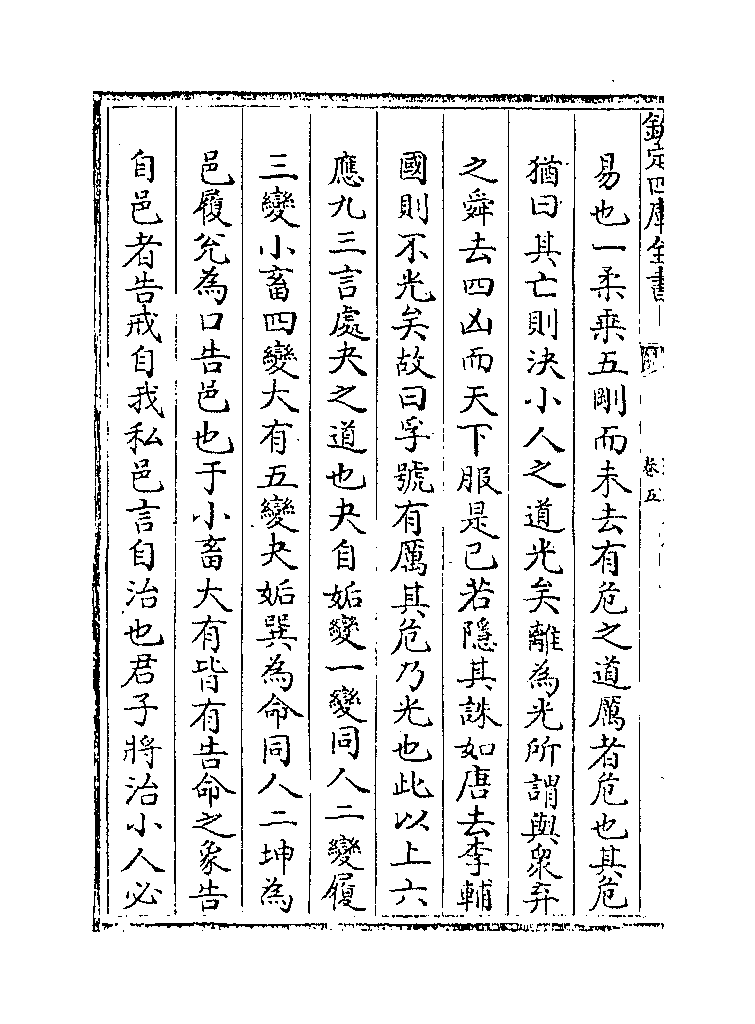 欽定四庫全書
卷五
易也一柔乘五剛而未去有危之道厲者危也其危
猶曰其亡則決小人之道光矣離為光所謂與衆弃
之舜去四凶而天下服是已若隱其誅如唐去李輔
國則不光矣故曰孚號有厲其危乃光也此以上六
應九三言處夬之道也夬自姤變一變同人二變履
三變小畜四變大有五變夬姤巽為命同人二坤為
邑履兊為口告邑也于小畜大有皆有告命之象告
自邑者告戒自我私邑言自治也君子將治小人必